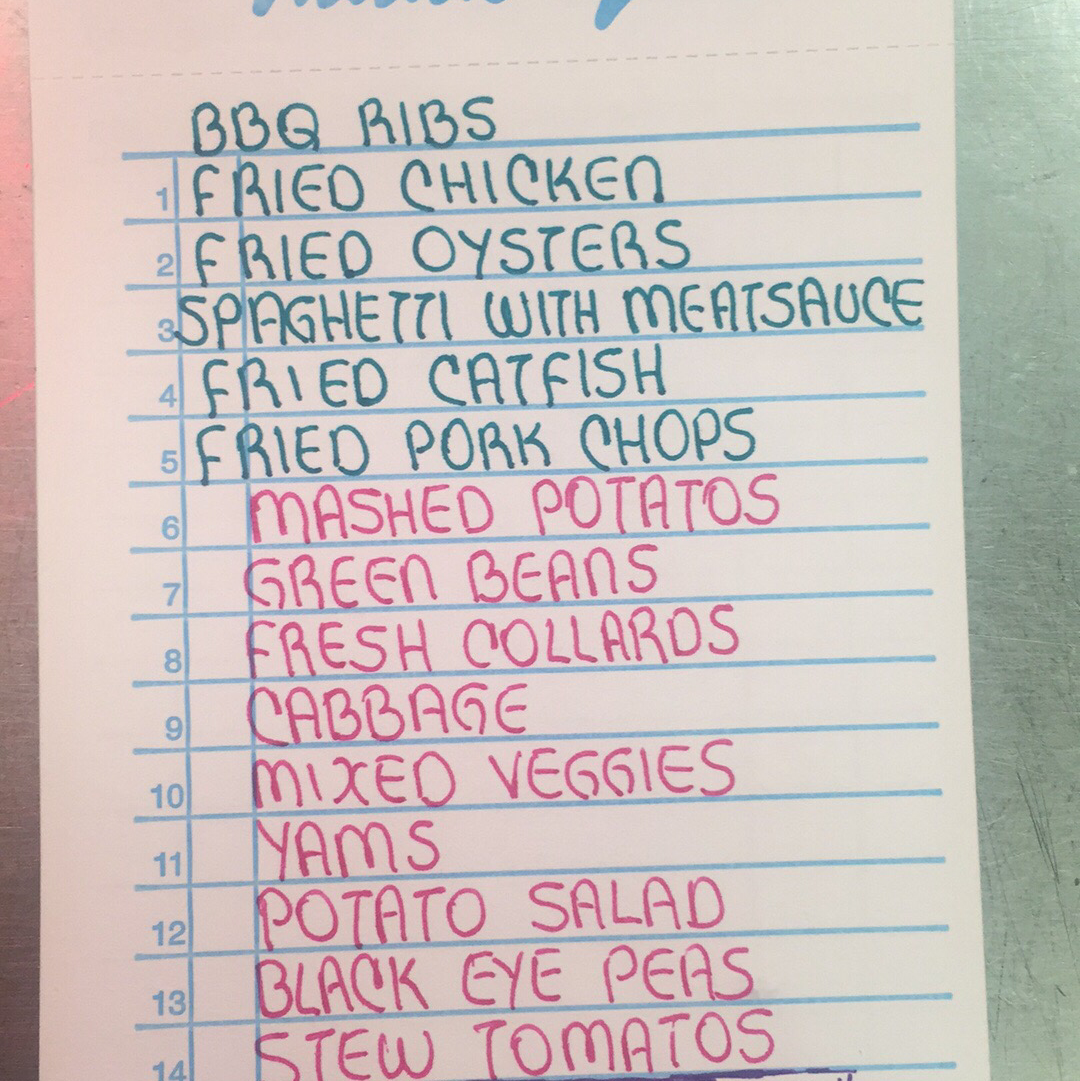 BBQ RIBS
1 FRIED CHICKEN
2 FRIED OYSTERS
3 SPAGHETTI WITH MEATSAUCE
4 FRIED CATFISH
5 FRIED PORK CHOPS
6 MASHED POTATOS
7 GREEN BEANS
8 FRESH COLLARDS
9 CABBAGE
10 MIXED VEGGIES
11 YAMS
12 POTATO SALAD
13 BLACK EYE PEAS
14 STEW TOMATOS